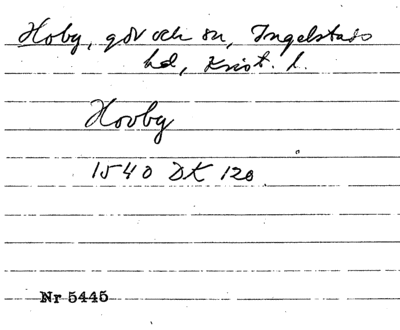 Hoby, gdr och sn, Ingelstads
hd, Krist. l.
Hovby
1540 DK 120
Nr 5445